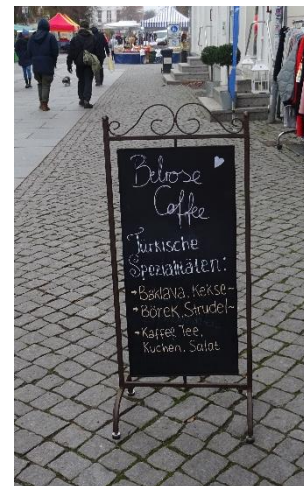 Belrose
Coffee
Türkische
Spezialitäten:
→Baklava, Kekse~
→Börek, Strudel~
→Kaffee, Tee,
Kuchen, Salat